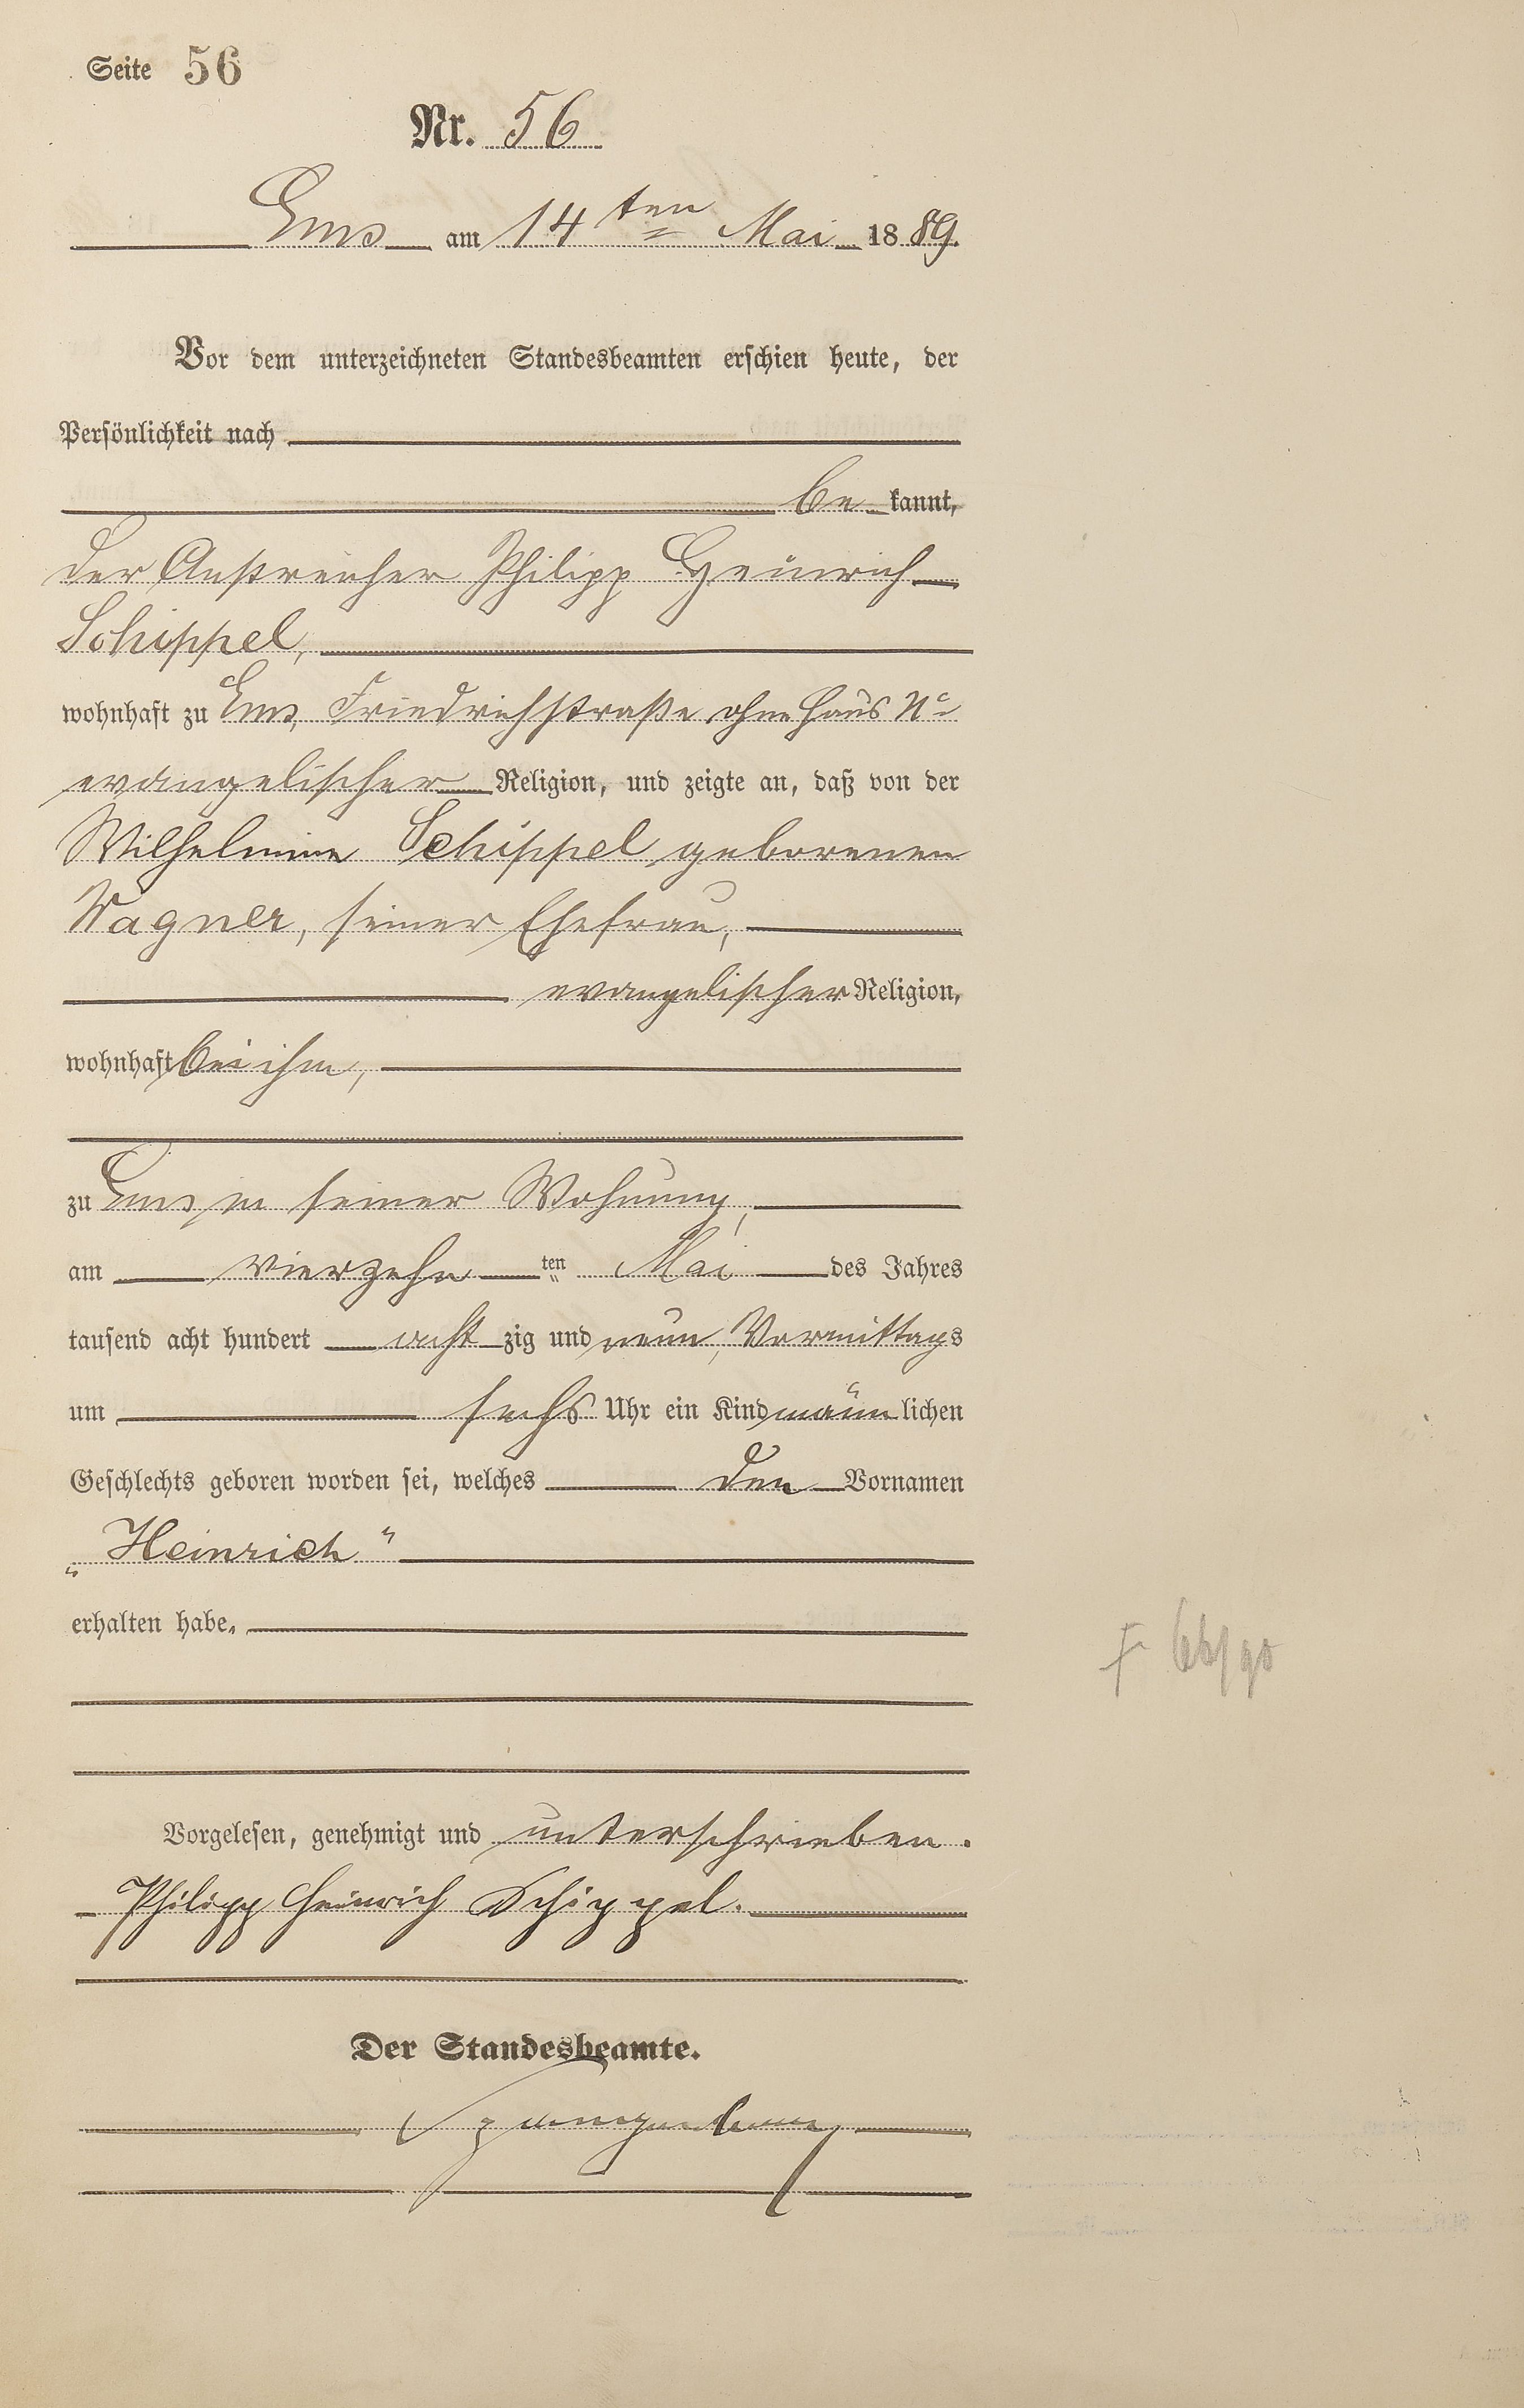 Seite 56
Nr. 56
Ems am 14ten Mai 1889.
Vor dem unterzeichneten Standesbeamten erschien heute, der
Persönlichkeit nach
be kannt,
der Anstreicher Philipp Heinrich
Schippel,
wohnhaft zu Ems, Friedrichstraße ohne Haus No
evangelischer Religion, und zeigte an, daß von der
Wilhelmine Schippel geborenen
Wagner, seiner Ehefrau,
evangelischer Religion,
wohnhaft bei ihm,
zu Ems in seiner Wohnung,
am vierzehn ten Mai des Jahres
tausend acht hundert acht zig und neun, Vormittags
um sechs Uhr ein Kind männlichen
Geschlechts geboren worden sei, welches den Vornamen
„Heinrich“
erhalten habe.
Vorgelesen, genehmigt und unterschrieben.
Philipp Heinrich Schippel.
Der Standesbeamte.